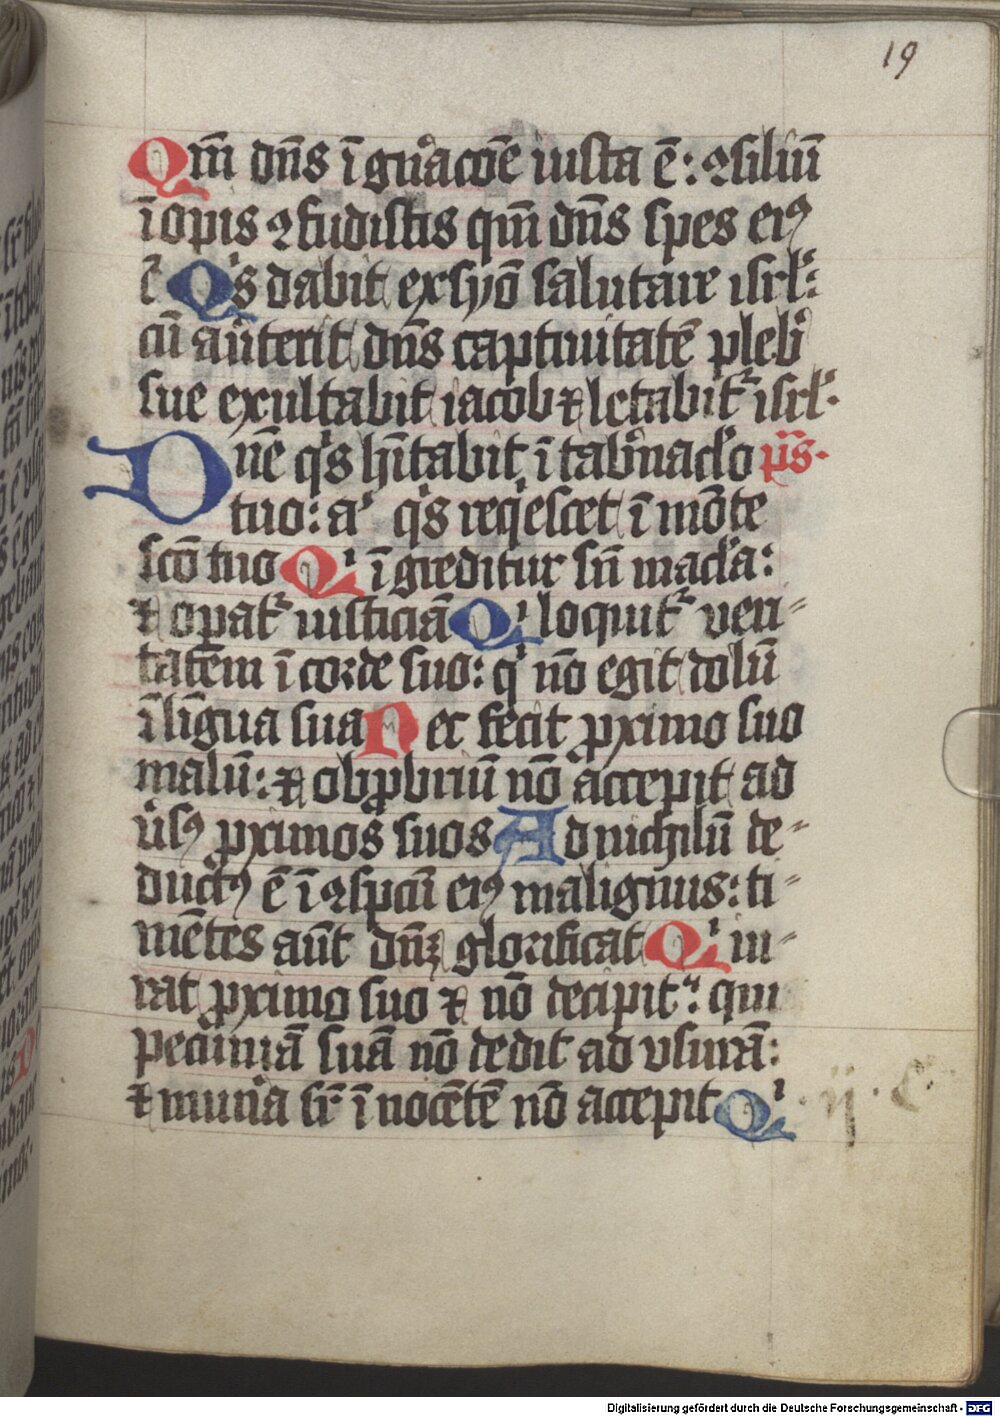 19
Qm̄ dn̄s ī gn̄ac̄oe iusta ē: ꝯsiliū
īopis ꝯfudistis qm̄ dn̄s spes eiꝰ
ē Qͥs dabit ex syō salutare isrl̄:
cū aūterit dn̄s captiuitatē plebͥ
sue exultabit iacob ⁊ letabitᷣ isrl̄.
Dn̄e qͥs hītabit ī tabn̄aclo p̄s.
tuo: aͥ qͥs reqͥescet ī mōte
scō tuo Qͥ īgreditur sn̄ macla:
⁊ opatᷣ iusticiā Qͥ loquitᷣ veri-
tatem ī corde suo: qͥ nō egit dolū
ī līgua sua Nec fecit ꝓximo suo
malū: ⁊ obꝓbriū nō accepit ad
ūsꝰ ꝓximos suos Ad nichilū de-
ductꝰ ē ī ꝯspcū eiꝰ malignus: ti-
mētes aūt dn̄ꝫ glorificat Qͥ iu-
rat ꝓximo suo ⁊ nō decipit: qui
pecuniā suā nō dedit ad vsurā:
⁊ mun̄a sr̄ īnocētē nō accepit Qͥ
Digitalisierung gefördert durch die Deutsche Forschungsgemeinschaft - DFG